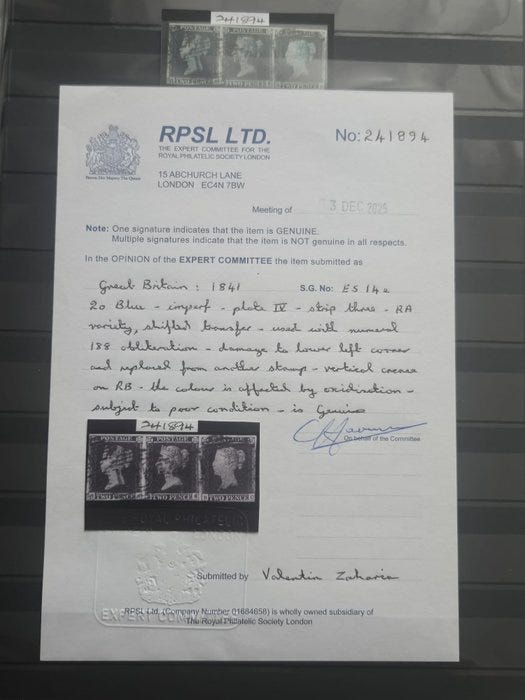 241894
POSTAGE
TWO PENCE
TWO PENCE
RPSL LTD.
THE EXPERT COMMITTEE FOR THE
ROYAL PHILATELIC SOCIETY LONDON
No: 241894
15 ABCHURCH LANE
LONDON EC4N 7BW
Meeting of 3 DEC 2025
Note: One signature indicates that the item is GENUINE.
Multiple signatures indicate that the item is NOT genuine in all respects.
In the OPINION of the EXPERT COMMITTEE the item submitted as
Great Britain: 1841 S.G. No: ES 14e
2D Blue - imperf - plate IV - strip three - RA
variety, shifted transfer - used with numeral
188 obliteration - damage to lower left corner
and replaced from another stamp - vertical crease
on RB - the colour is affected by oxidisation -
subject to poor condition - is Genuine
On behalf of the Committee
241894
POSTAGE POSTAGE POSTAGE
TWO PENCE TWO PENCE TWO PENCE
ROYAL PHILATELIC
LONDON
Submitted by Valentin Zaharia
EXPERT COM
RPSL Ltd. (Company Number 01684658) is wholly owned subsidiary of
The Royal Philatelic Society London